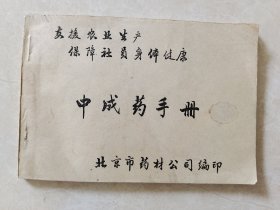 支援农业生产
保障社员身体健康
中成药手册
北京市药材公司编印